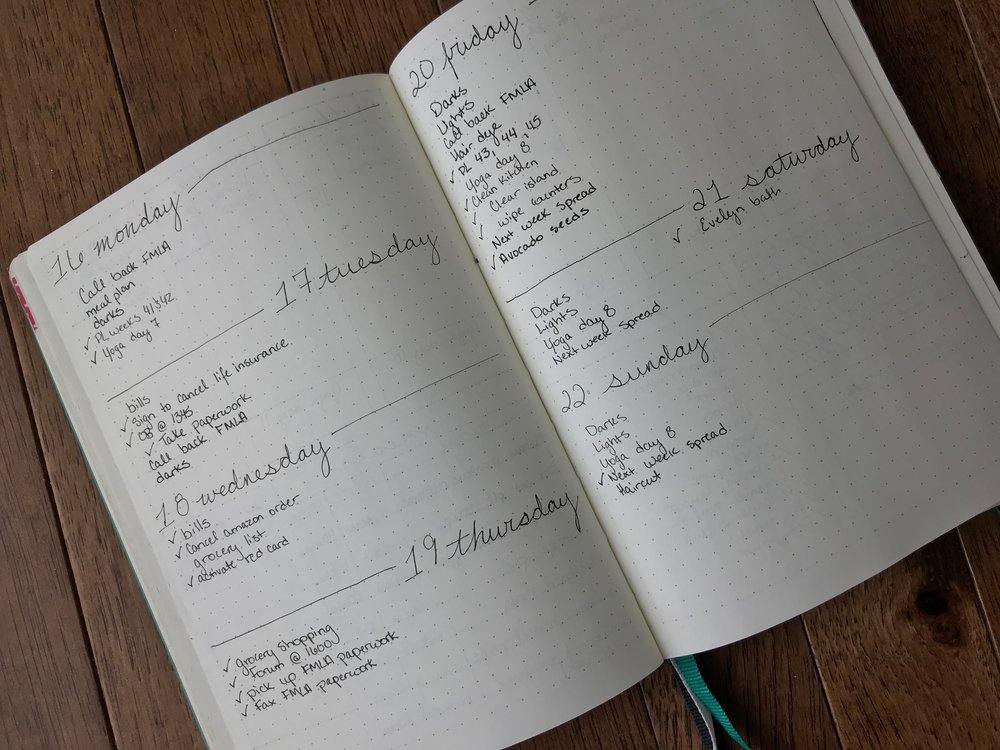 16 monday
Call back FMLA
meal plan
darks
✓ PL weeks 41 & 42
✓ Yoga day 7
17 tuesday
bills
✓ Sign to cancel life insurance
✓ OB @ 1345
✓ Take Paperwork
Call back FMLA
darks
18 wednesday
✓ bills
✓ Cancel amazon order
grocery list
✓ activate red card
19 thursday
✓ grocery shopping
✓ Forum @ 1600
✓ pick up FMLA paperwork
✓ Fax FMLA paperwork
20 friday
Darks
Lights
Call back FMLA
Hair dye
✓ PL 43, 44, 45
Yoga day 8
✓ Clean Kitchen
✓ Clear island
✓ wipe counters
Next week spread
✓ Avocado seeds
21 saturday
✓ Evelyn bath
Darks
Lights
Yoga day 8
Next week spread
22 sunday
Darks
Lights
Yoga day 8
✓ Next week spread
Haircut